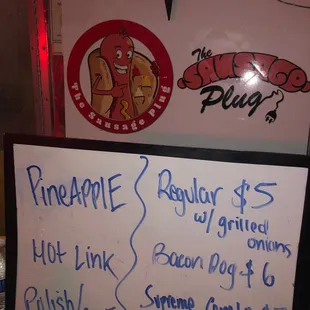 The Sausage Plug
The
SAUSAGE
Plug
PineAPPLE
Hot Link
Polish/
Regular $5
w/ grilled
onions
Bacon Dog $6
Supreme